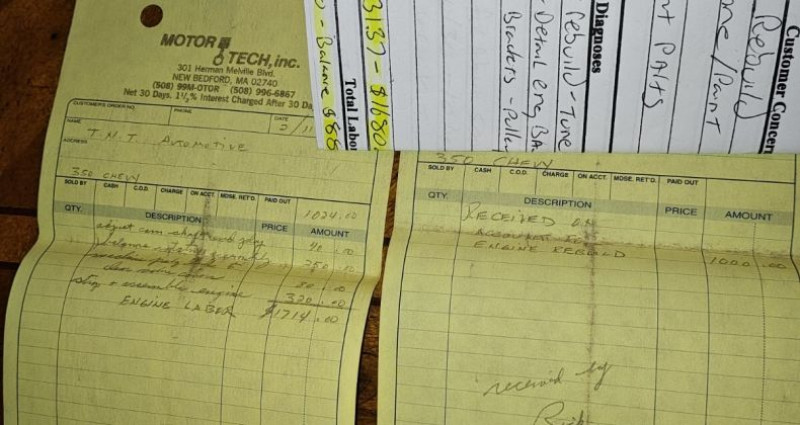 MOTOR
TECH, inc.
301 Herman Melville Blvd.
NEW BEDFORD, MA 02740
(508) 99M-OTOR (508) 996-6867
Net 30 Days. 1½% Interest Charged After 30 Da
CUSTOMER'S ORDER NO. PHONE DATE
2/11
NAME T.N.T. AUTOMOTIVE
ADDRESS
350 CHEVY
SOLD BY CASH C.O.D. CHARGE ON ACCT. MDSE. RET'D. PAID OUT
1024.00
QTY. DESCRIPTION PRICE AMOUNT
adjust cam 40.00
250.00
80.00
strip & assemble engine 320.00
ENGINE LABOR $1714.00
350 CHEVY
SOLD BY CASH C.O.D. CHARGE ON ACCT. MDSE. RET'D. PAID OUT
QTY. DESCRIPTION PRICE AMOUNT
RECEIVED ON
ACCOUNT
ENGINE REBUILD 1000.00
received by
Customer Concern
Rebuild
me/Paint
nt PARTS
Diagnoses
Rebuild-Tune
- Detail eng BA
Braders - Pulle
Total Labo
3137 - $1680
- Balance $88